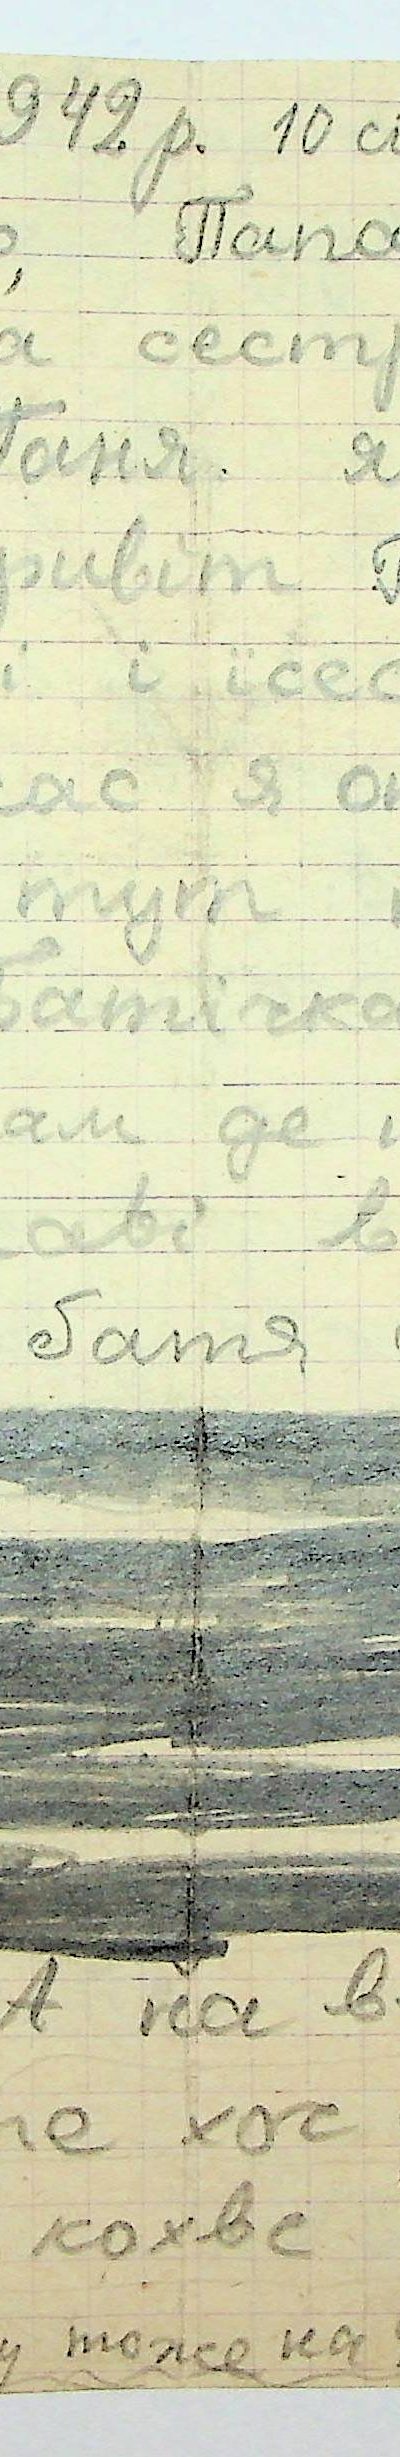 942 р. 10 сі
Папа
а сестр
Таня. я
ривіт
і і їсес
час я
тут
батічка
ам де
аві в
батя
А на в
не хоч
кохве
у тоже на